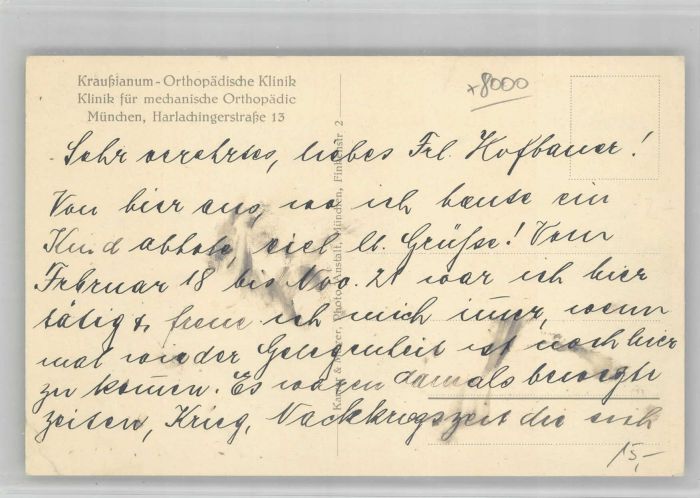 Kraußianum - Orthopädische Klinik
Klinik für mechanische Orthopädic
München, Harlachingerstraße 13
+8000
Sehr verehrtes, liebes Frl. Hofbauer!
Von hier aus, wo ich heute ein
Kind abhole, viel lb. Grüße! Vom
Februar 18 bis Nov. 21 war ich hier
tätig & freue ich mich im̅er, wenn
mal wieder Gelegenheit ist noch hier
zu kom̅en. Es waren damals bewegte
zeiten, Krieg, Nachkriegszeit die sich
15,-
Photo-Anstalt, München, Finkenstr 2